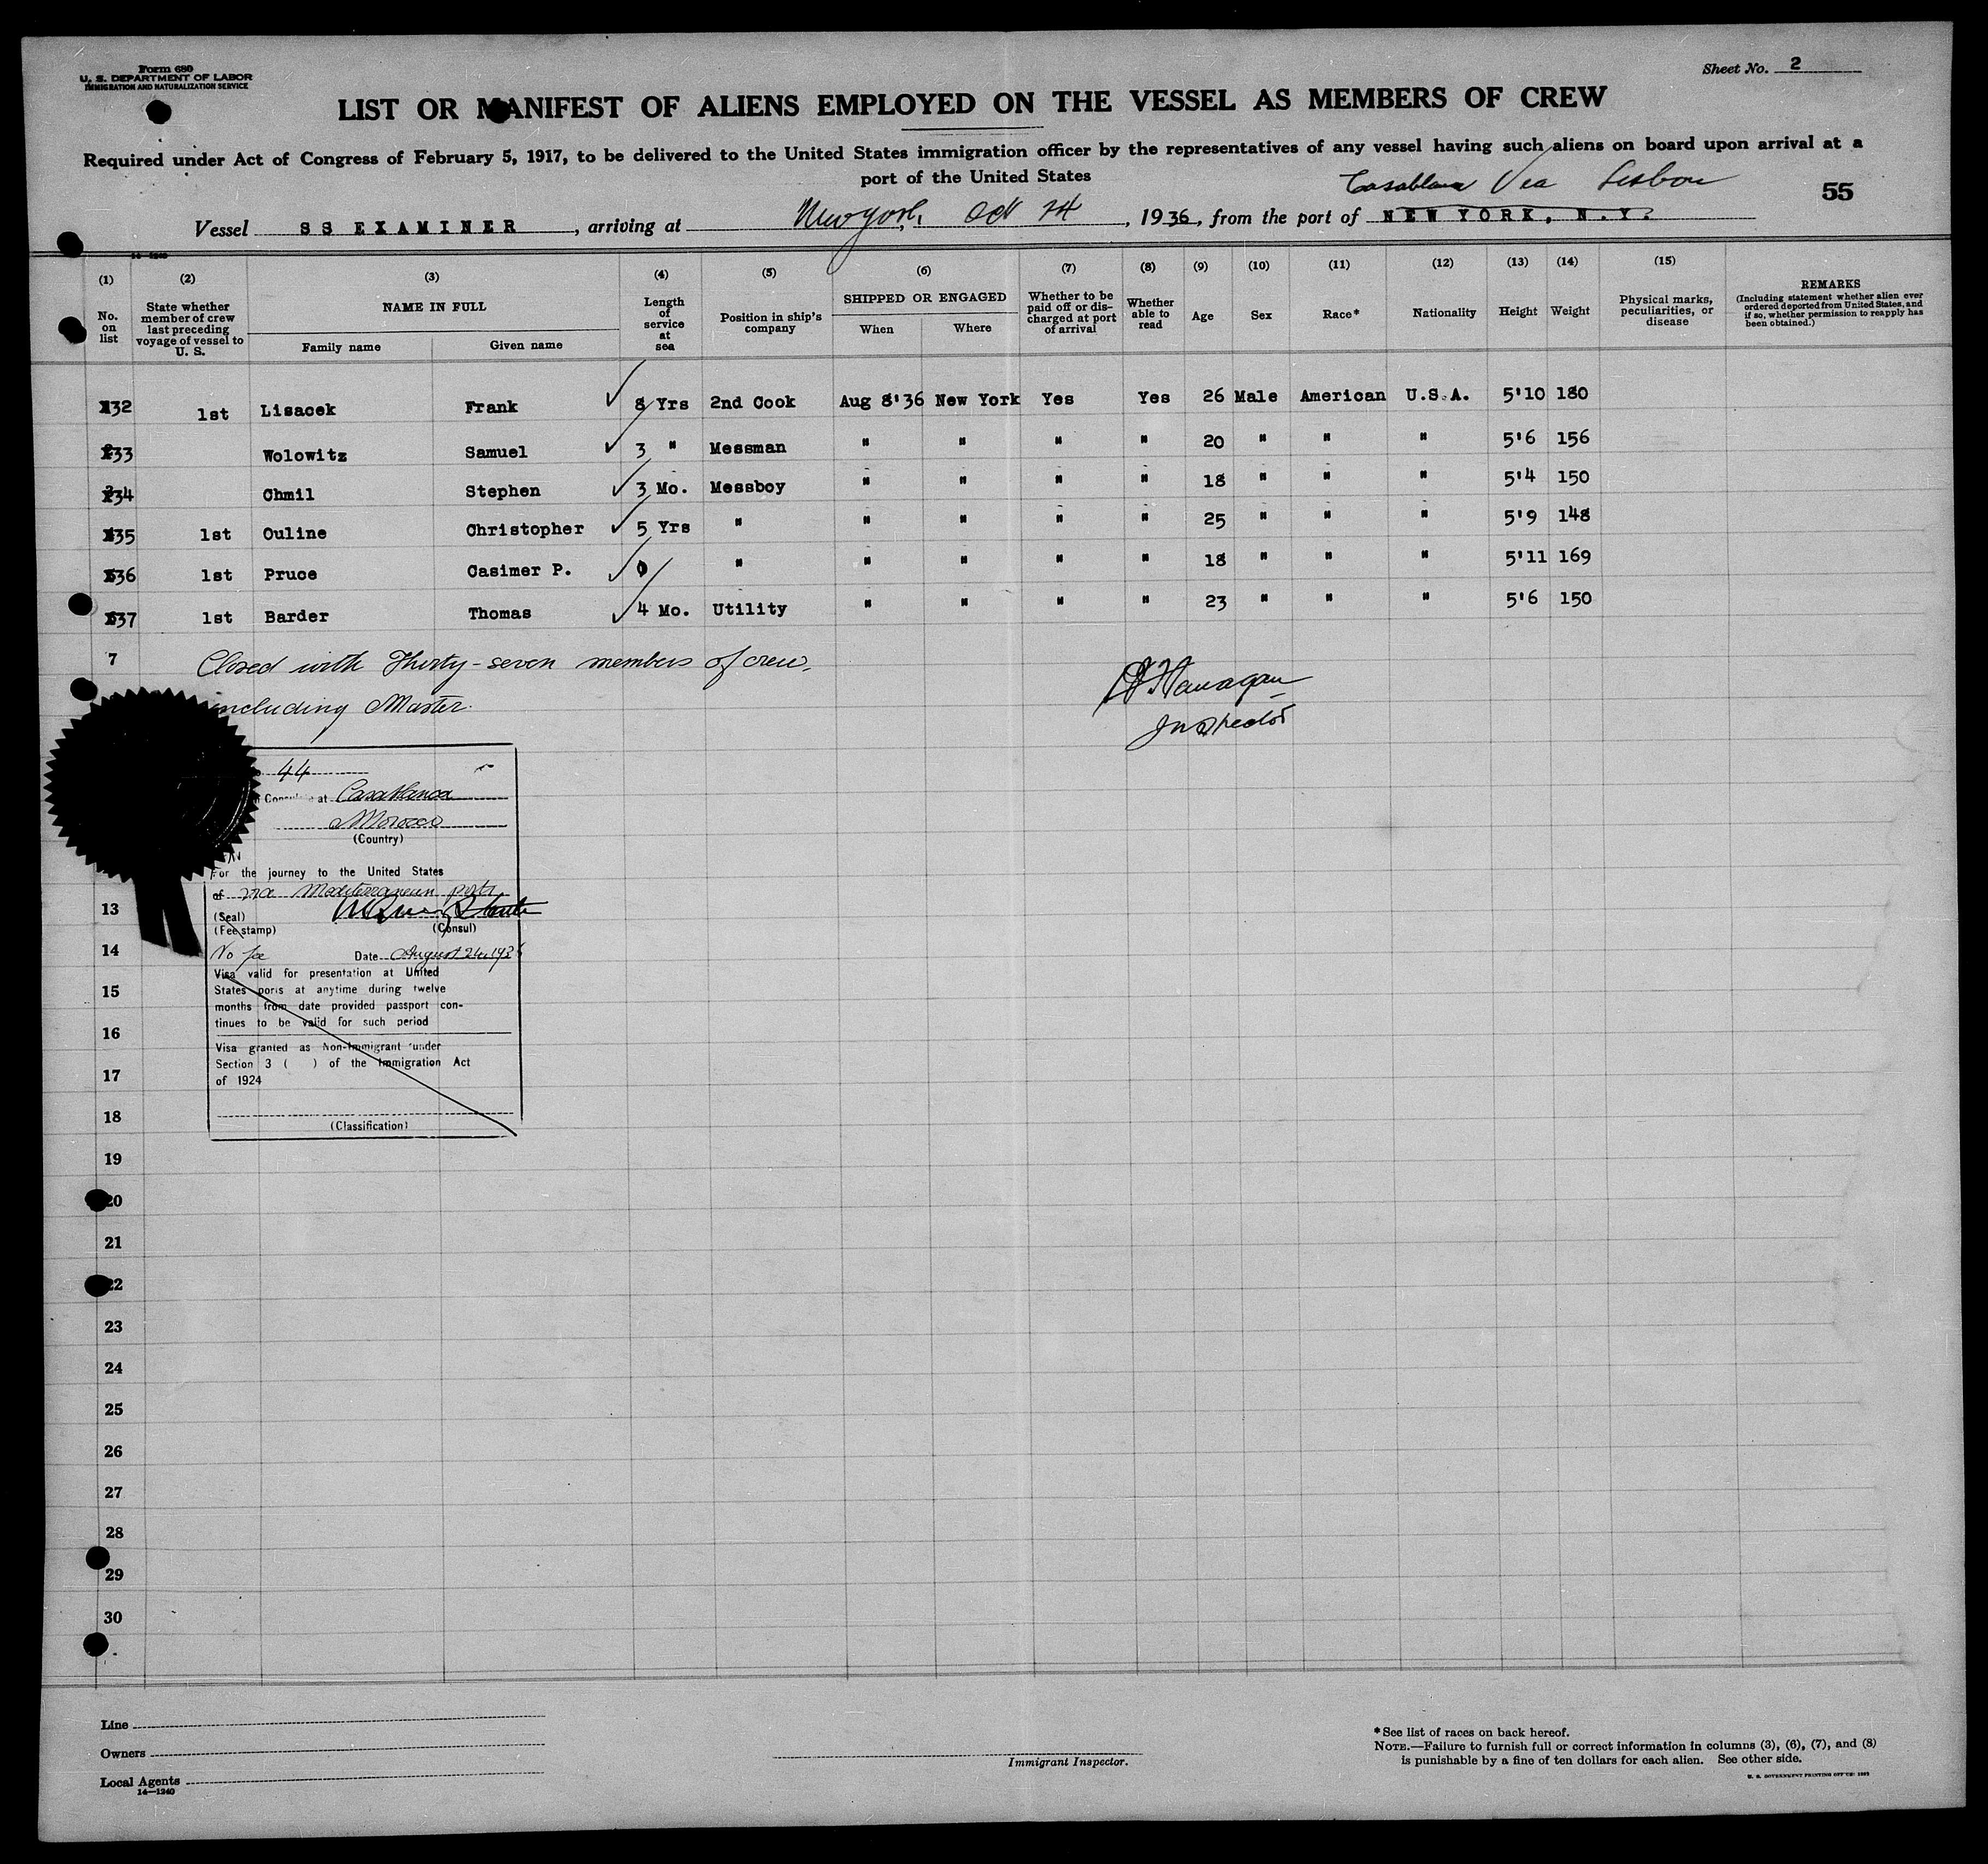 Form 680
U. S. DEPARTMENT OF LABOR
IMMIGRATION AND NATURALIZATION SERVICE
Sheet No. 2
LIST OR MANIFEST OF ALIENS EMPLOYED ON THE VESSEL AS MEMBERS OF CREW
Required under Act of Congress of February 5, 1917, to be delivered to the United States immigration officer by the representatives of any vessel having such aliens on board upon arrival at a
port of the United States
Casablanca Via Lisbon
55
Vessel SS EXAMINER, arriving at New York, Oct 14, 1936, from the port of NEW YORK, N.Y.
14—1240
(1) (2) (3) (4) (5) (6) (7) (8) (9) (10) (11) (12) (13) (14) (15)
No. on list
State whether member of crew last preceding voyage of vessel to U. S.
NAME IN FULL
Family name
Given name
Length of service at sea
Position in ship's company
SHIPPED OR ENGAGED
When
Where
Whether to be paid off or discharged at port of arrival
Whether able to read
Age
Sex
Race*
Nationality
Height
Weight
Physical marks, peculiarities, or disease
REMARKS
(Including statement whether alien ever ordered deported from United States, and if so, whether permission to reapply has been obtained.)
32 1st Lisacek Frank 8 Yrs 2nd Cook Aug 8'36 New York Yes Yes 26 Male American U.S.A. 5'10 180
33 Wolowitz Samuel 3 " Messman " " " " 20 " " " 5'6 156
34 Chmil Stephen 3 Mo. Messboy " " " " 18 " " " 5'4 150
35 1st Ouline Christopher 5 Yrs " " " " " 25 " " " 5'9 148
36 1st Pruce Casimer P. 0 " " " " " 18 " " " 5'11 169
37 1st Barder Thomas 4 Mo. Utility " " " " 23 " " " 5'6 150
7 Closed with Thirty-seven members of crew,
including Master.
Flanagan
Inspector
44
at Casablanca
Morocco
(Country)
For the journey to the United States
of via Mediterranean ports
(Seal)
(Fee stamp) (Consul)
No fee Date August 24, 1936
Visa valid for presentation at United
States ports at anytime during twelve
months from date provided passport con-
tinues to be valid for such period
Visa granted as Non-Immigrant under
Section 3 ( ) of the Immigration Act
of 1924
(Classification)
13
14
15
16
17
18
19
20
21
22
23
24
25
26
27
28
29
30
Line
Owners
Local Agents
14—1240
Immigrant Inspector.
*See list of races on back hereof.
NOTE.—Failure to furnish full or correct information in columns (3), (6), (7), and (8)
is punishable by a fine of ten dollars for each alien. See other side.